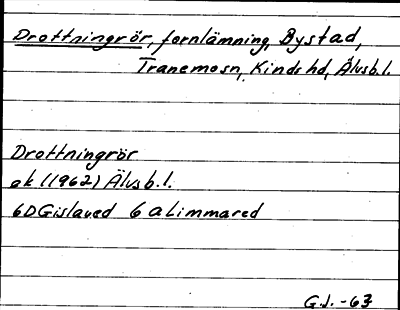 Drottningrör, fornlämning, Bystad,
Tranemo sn, Kinds hd, Älvsb. l.
Drottningrör
ek (1962) Älvsb. l.
6D Gislaved 6 a Limmared
G.J. -63